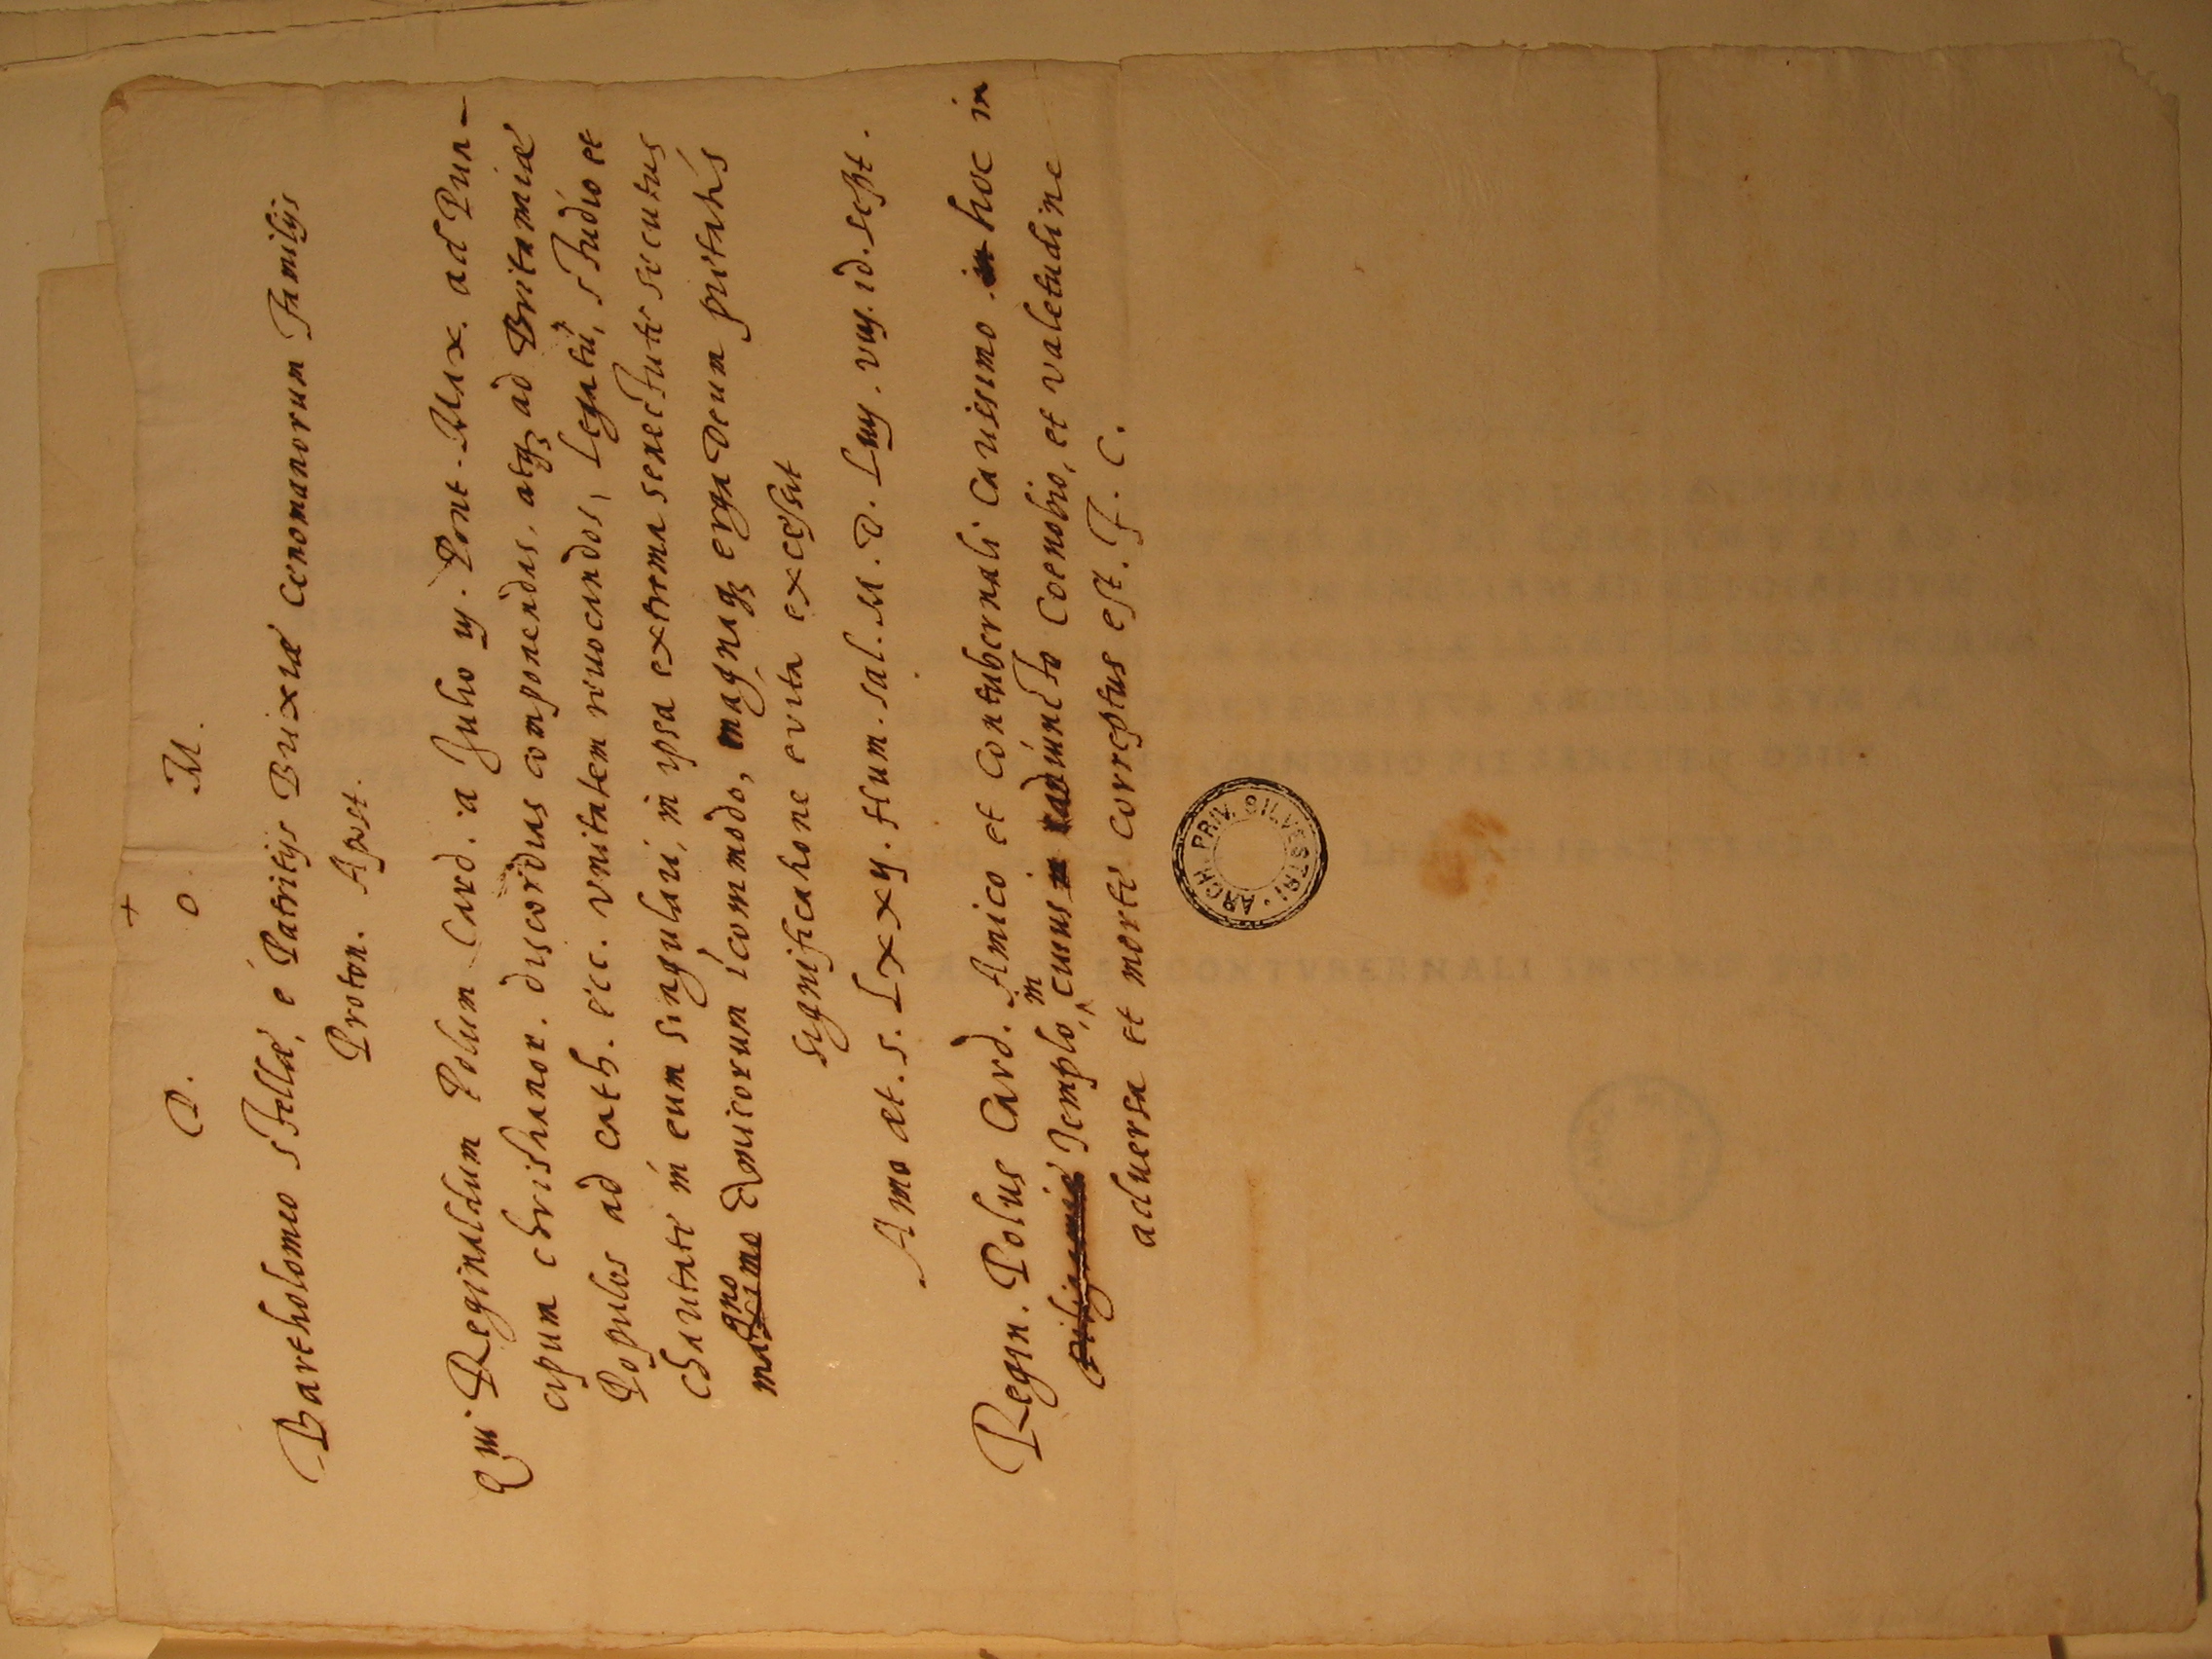 +
D. O. M.
Bartholomeo Stellæ, è Patritijs Brixiæ Cenomanorum Familijs
Proton. Apost.
Qui Reginaldum Polum Card. a Julio iij. Pont. Max. ad Prin-
cipum christianor. discordias componendas, atq; ad Britaniæ
Populos ad cath. ecc. unitatem reuocandos, Legatũ, studio et
charitate in eum singulari, in ipsa extrema senectute secutus
gno
maximo Amicorum icommodo, magnaq; erga Deum pietatis
significatione e vita excessit
Anno æt. s. Lxxij. Hum. sal. M. D. Liiij. viij. id. sept.
Regin. Polus Card. Amico et Contubernali Carissimo in hoc in
Templo, in cuius in adiuncto Coenobio, et valetudine
aduersa et morte correptus est. F. C.
ARCH. PRIV. SILVESTRI